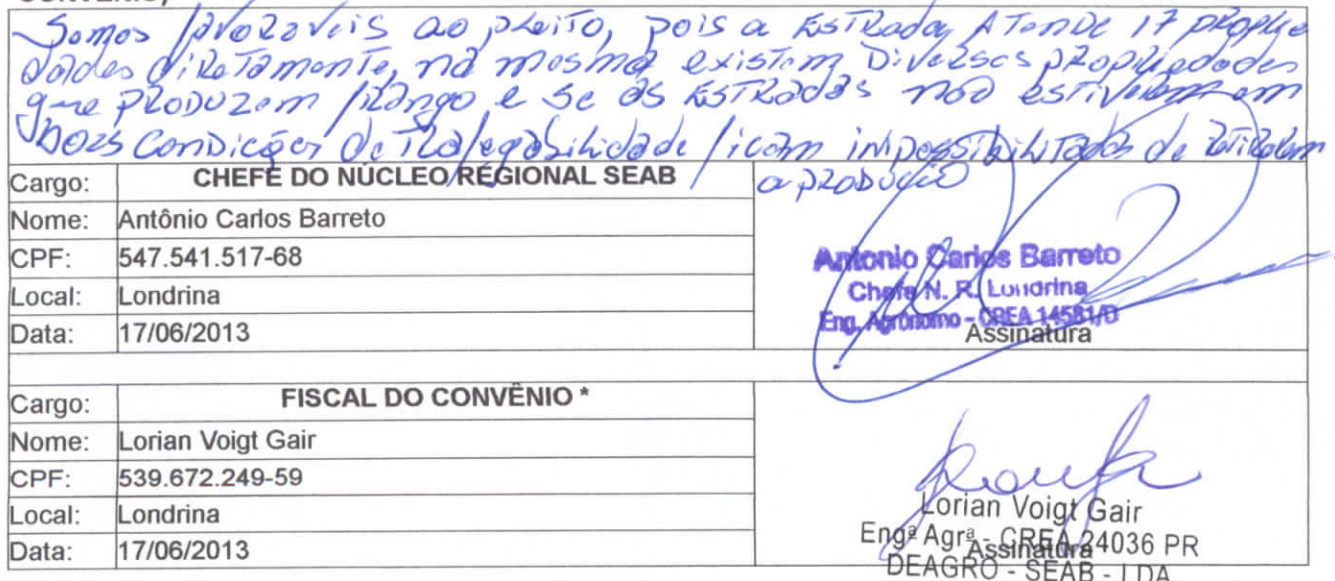 Somos favoraveis ao pleito, pois a Estrada, Atende 17 proprie
dades diretamente, na mesma existem Diversas propriedades
que produzem frango e se as Estradas não estiverem em
boas Condições de trafegabilidade ficam impossibilitados de retirarem
a produção
Cargo: CHEFE DO NÚCLEO REGIONAL SEAB
Nome: Antônio Carlos Barreto
CPF: 547.541.517-68
Local: Londrina
Data: 17/06/2013
Antonio Carlos Barreto
Chefe N. R. Londrina
Eng. Agrônomo - CREA 14581/D
Assinatura
Cargo: FISCAL DO CONVÊNIO *
Nome: Lorian Voigt Gair
CPF: 539.672.249-59
Local: Londrina
Data: 17/06/2013
Lorian Voigt Gair
Engª Agrª - CREA 24036 PR
Assinatura
DEAGRO - SEAB - LDA